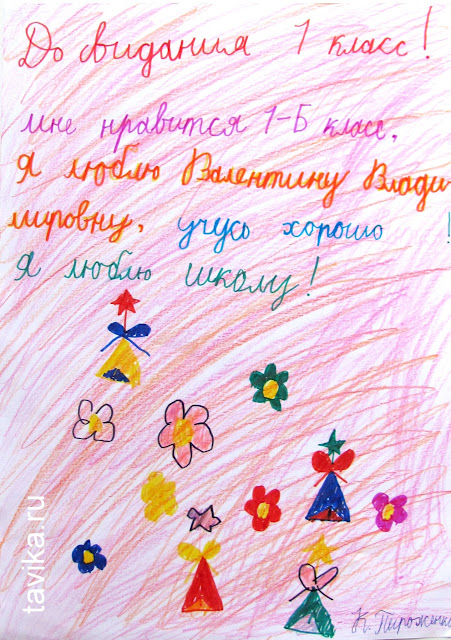 До свидания 1 класс!
мне нравится 1-Б класс,
Я люблю Валентину Влади-
мировну, учусь хорошо !
Я люблю школу!
tavika.ru
К. Пироженко